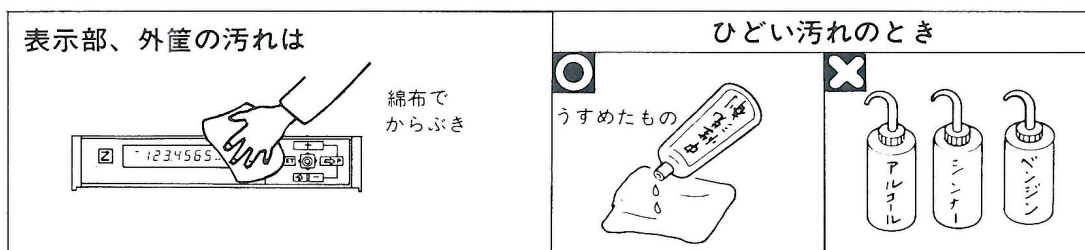 表示部、外筐の汚れは
綿布で
からぶき
Z
-1234565
+
-
ひどい汚れのとき
うすめたもの
中性
アルコール
シンナー
ベンジン